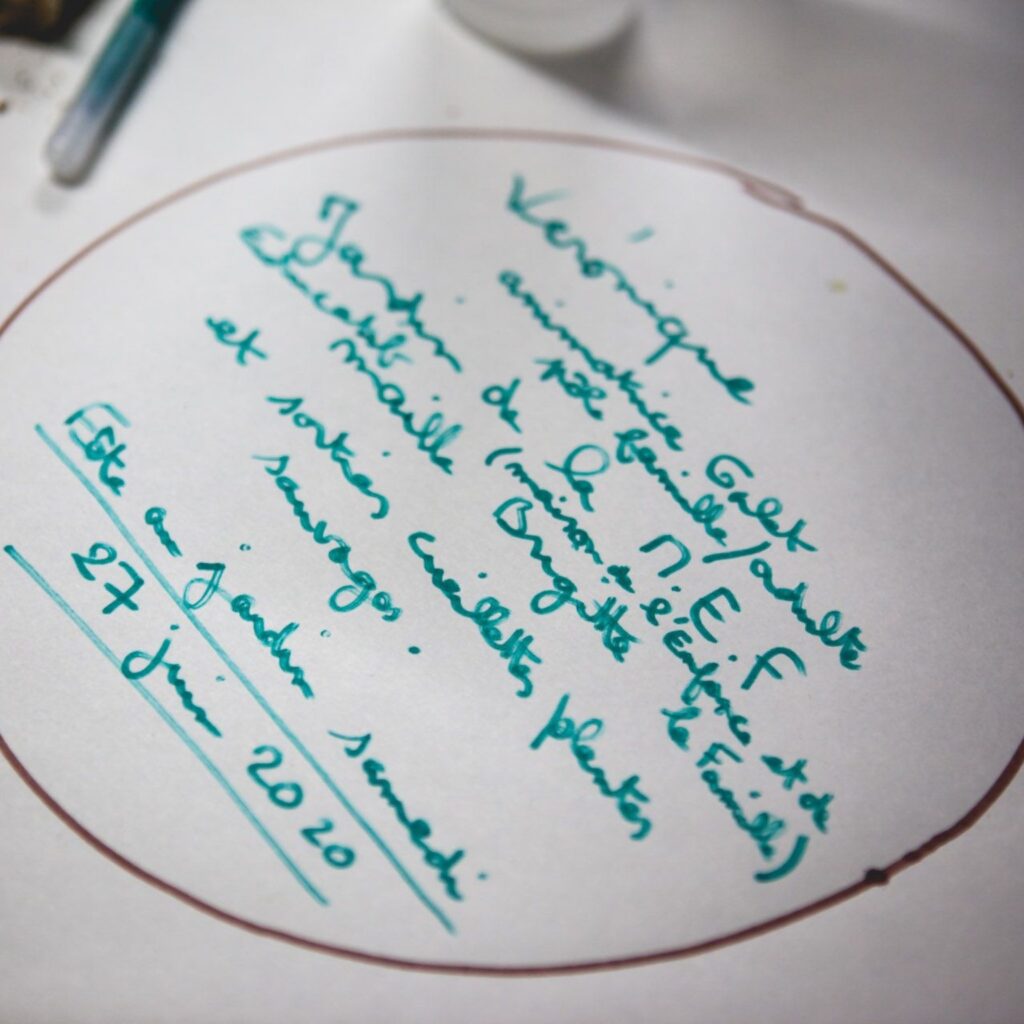 Véronique
animatrice Galet
pôle famille/adulte
Jardin de la M E F
(maison de l'Enfance et de
la Famille)
maille Brigitte
et sorties cueillettes plantes
sauvages.
au jardin samedi
27 juin 2020